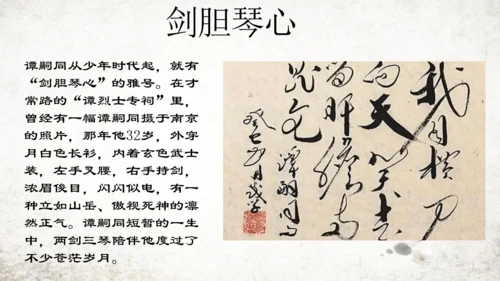 剑胆琴心
谭嗣同从少年时代起,就有
“剑胆琴心”的雅号。在才
常路的“谭烈士专祠”里,
曾经有一幅谭嗣同摄于南京
的照片,那年他32岁,外穿
月白色长衫,内着玄色武士
装,左手叉腰,右手持剑,
浓眉俊目,闪闪似电,有一
种立如山岳、傲视死神的凛
然正气。谭嗣同短暂的一生
中,两剑三琴陪伴他度过了
不少苍茫岁月。
我自横刀
向天笑去
留肝胆两
昆仑 谭嗣同句